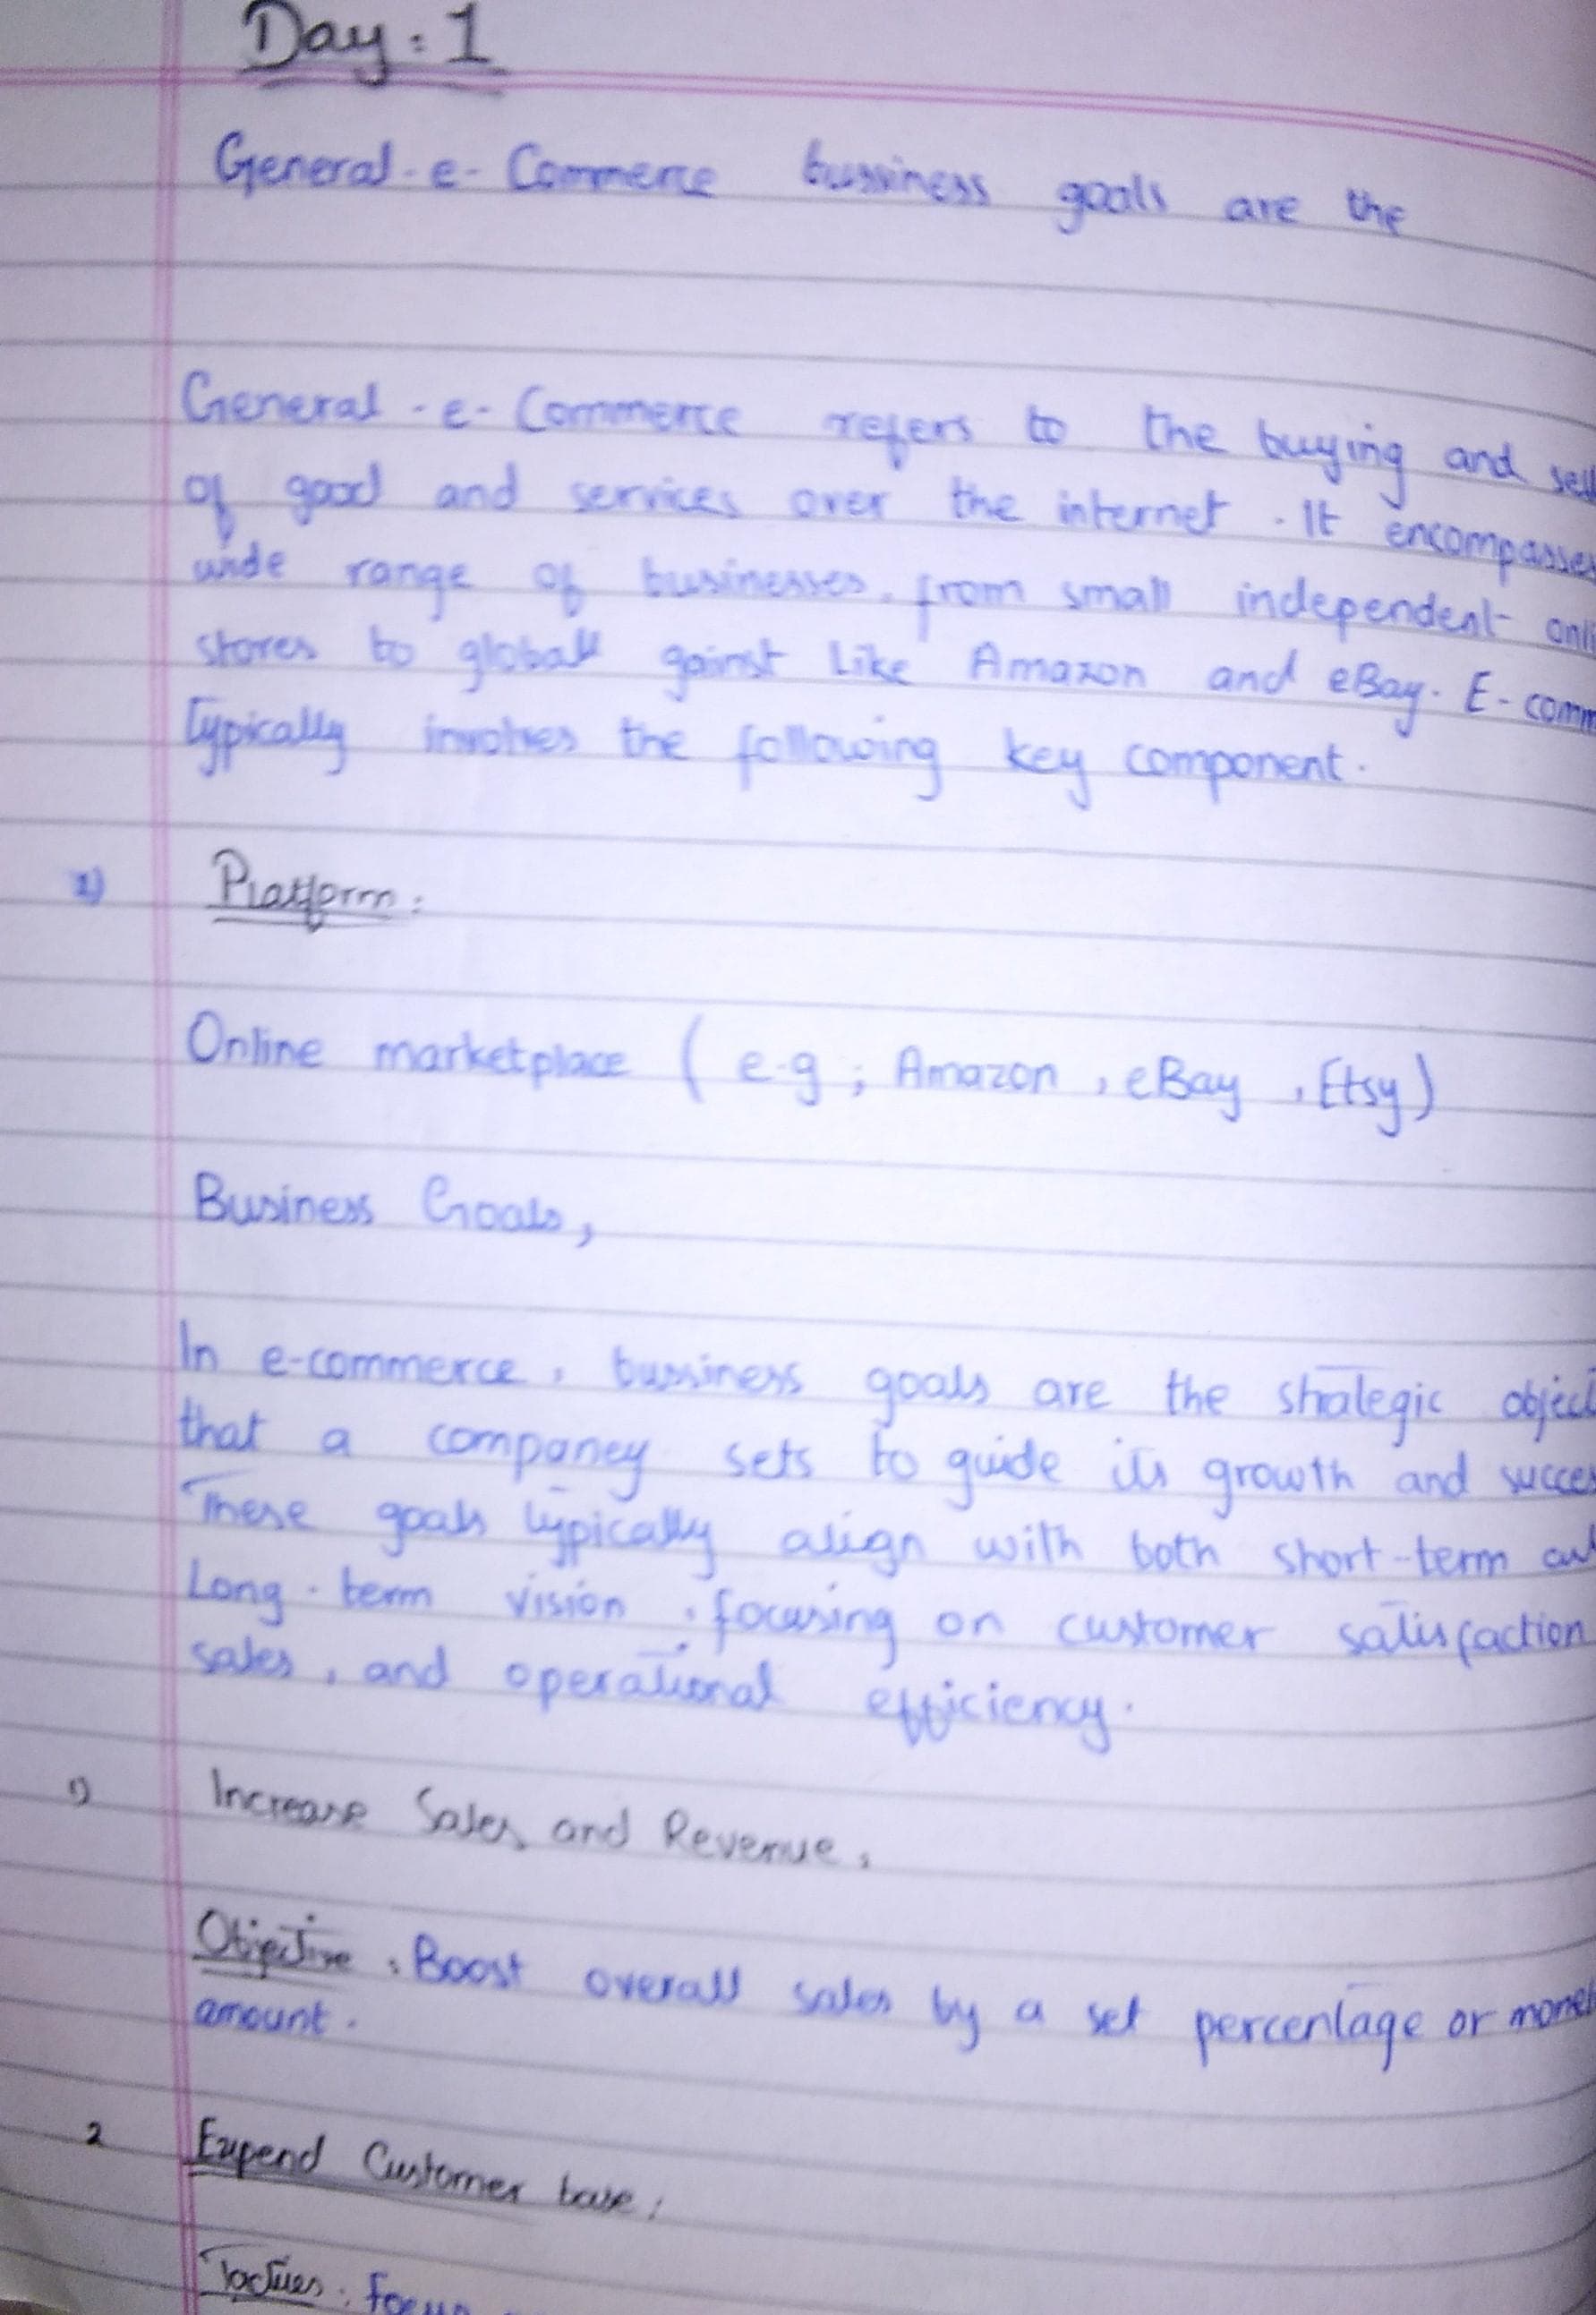 Day : 1
General - e - Commerce bussiness goals are the
General - e - Commerce refers to the buying and sell
of good and services over the internet . It encompasses
wide range of businesses, from small independent onli
stores to globall gainst Like Amazon and eBay. E-comm
Typically involves the following key component.
1) Platform :
Online marketplace ( e.g ; Amazon , eBay , Etsy )
Business Goals,
In e-commerce , bussiness goals are the strategic object
that a companey sets to guide its growth and succes
These goals typically align with both short-term and
Long - term vision , focusing on customer satisfaction
sales , and operational efficiency .
1) Increase Sales and Revenue ,
Objective : Boost overall sales by a set percentage or monet
amount .
2 Expend Customer base ;
Tactics : Focus